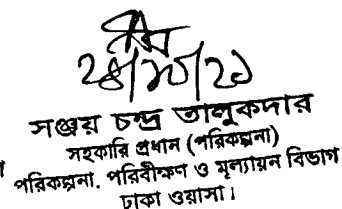 সঞ্জয় চন্দ্র তালুকদার
সহকারি প্রধান (পরিকল্পনা)
পরিকল্পনা, পরিবীক্ষণ ও মূল্যায়ন বিভাগ
ঢাকা ওয়াসা।